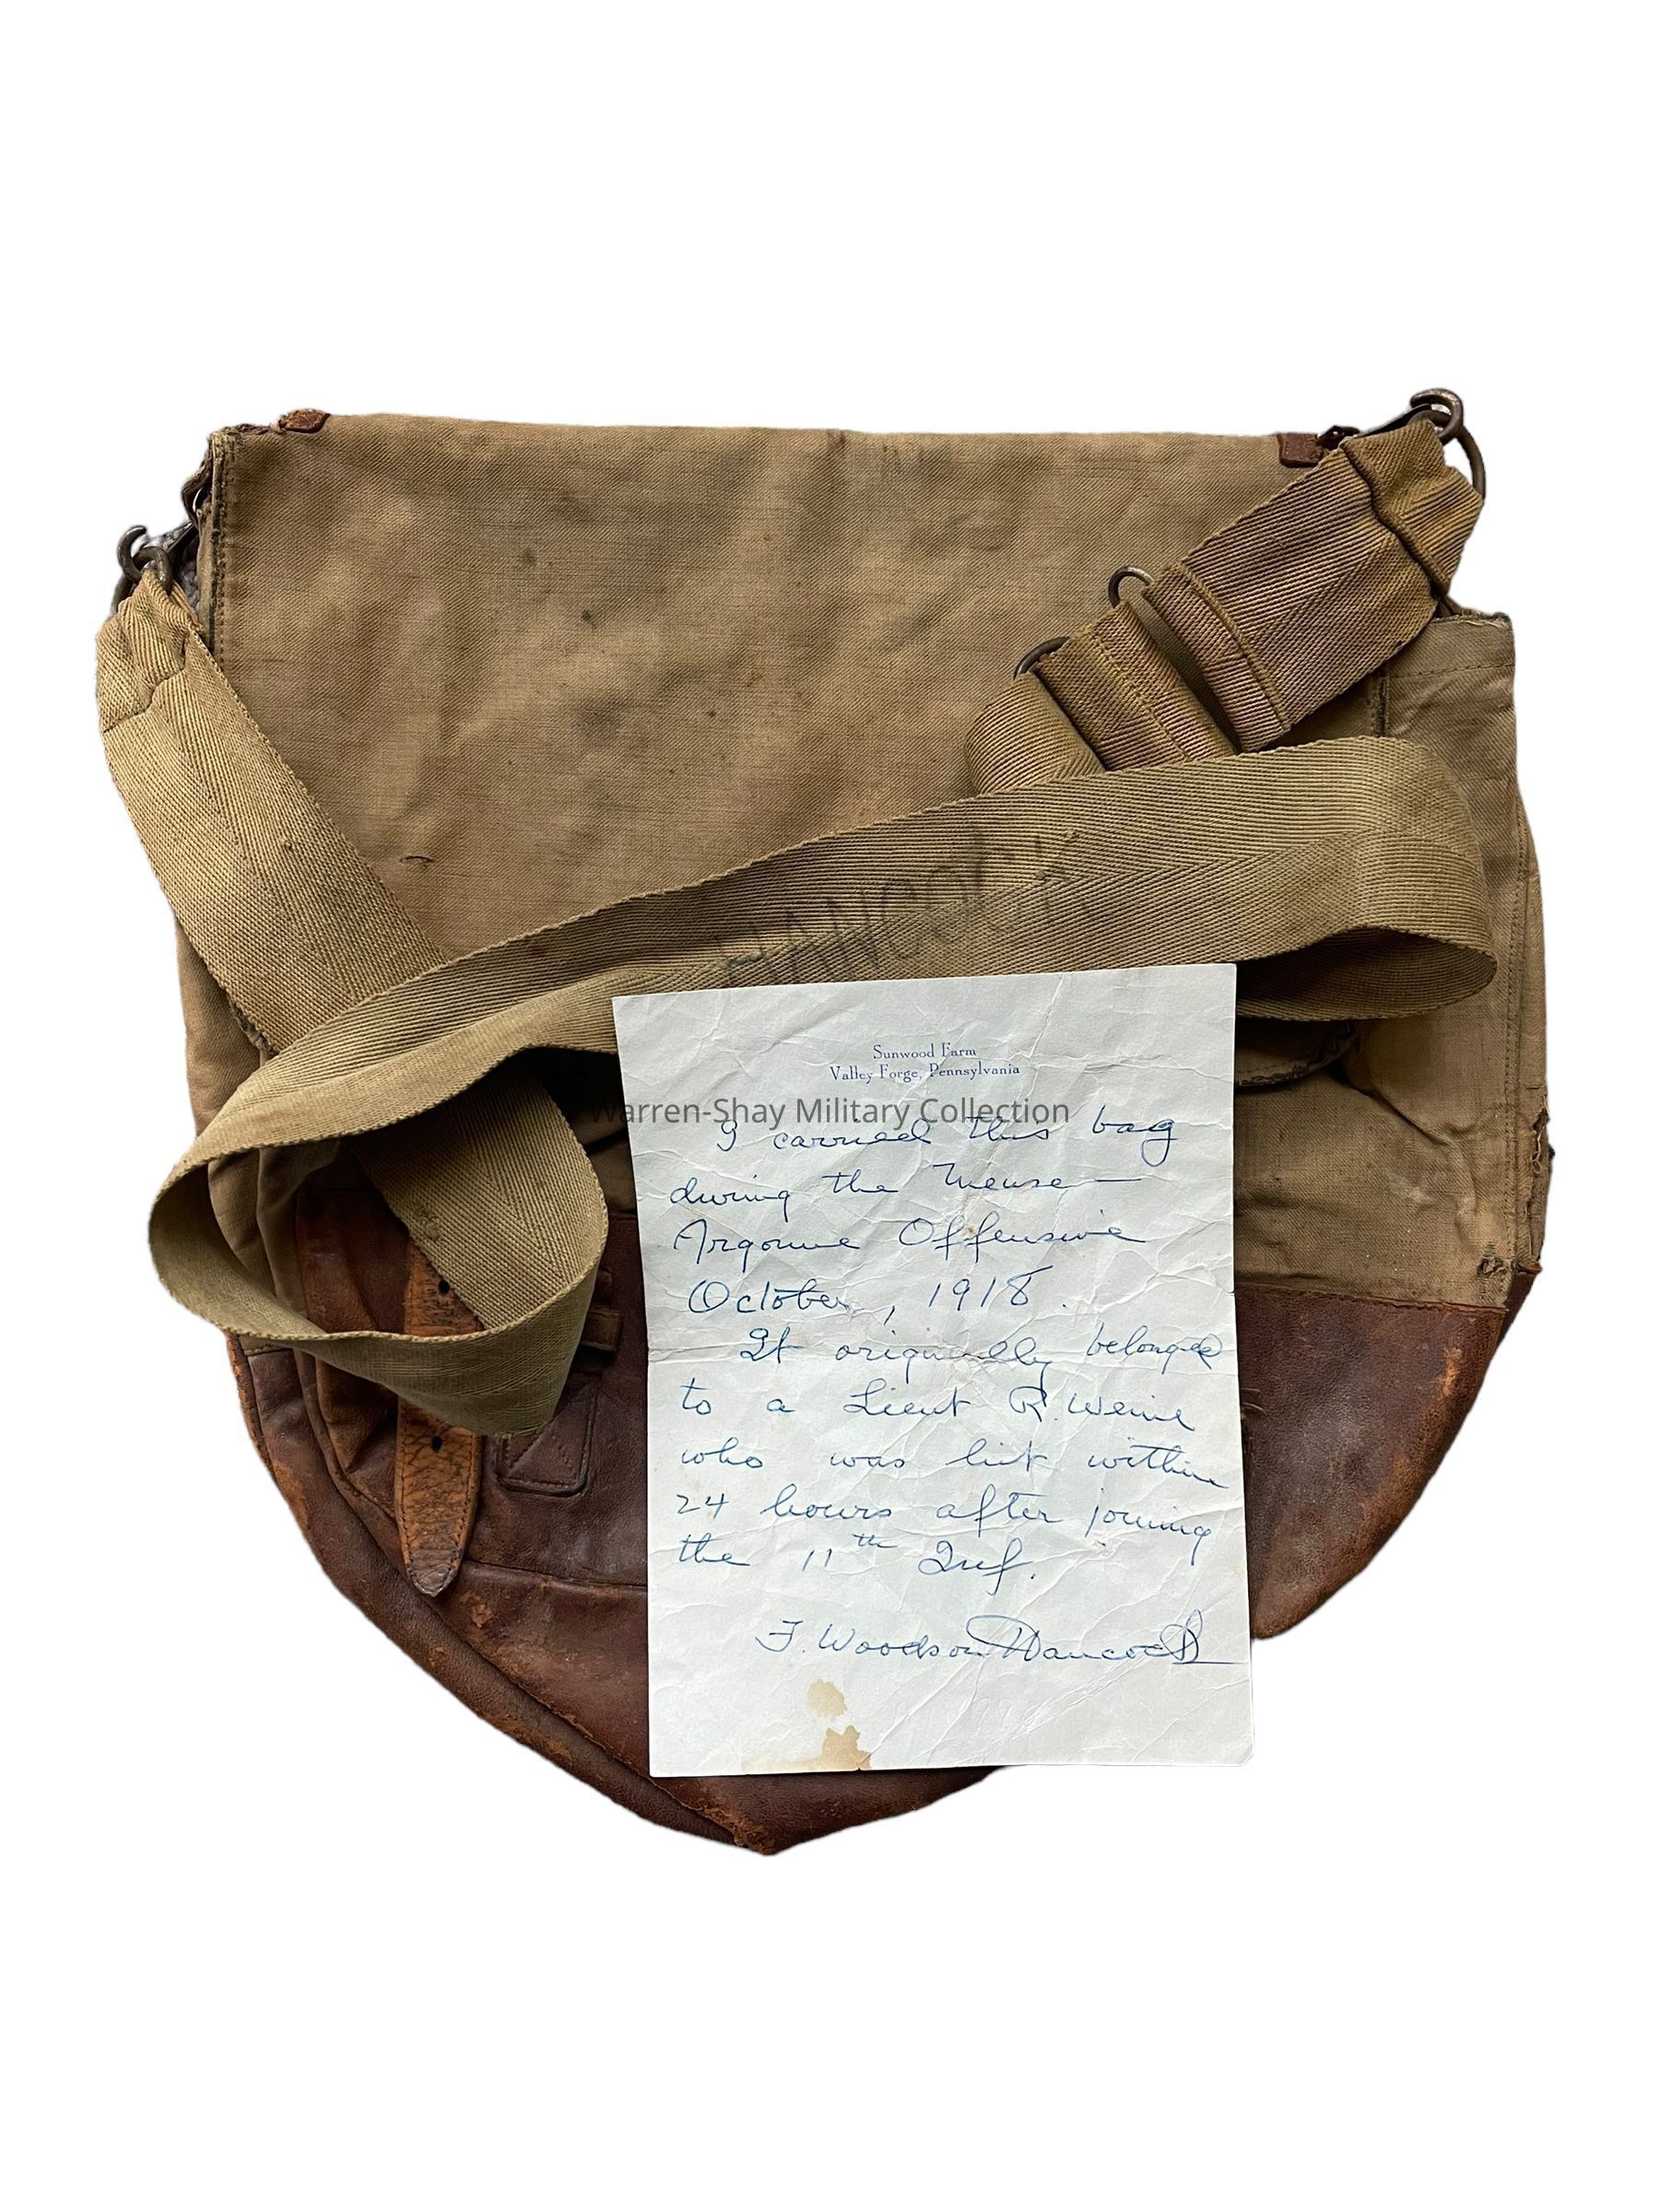 HANCOCK
Sunwood Farm
Valley Forge, Pennsylvania
Warren-Shay Military Collection
I carried this bag
during the Meuse —
Argonne Offensive
October, 1918.
It originally belonged
to a Lieut R. Weine
who was hit within
24 hours after joining
the 11th Inf.
F. Woodson Hancock